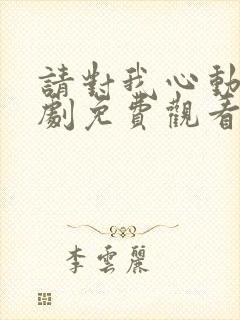 請對我心動
劇免費觀看
李雲麗